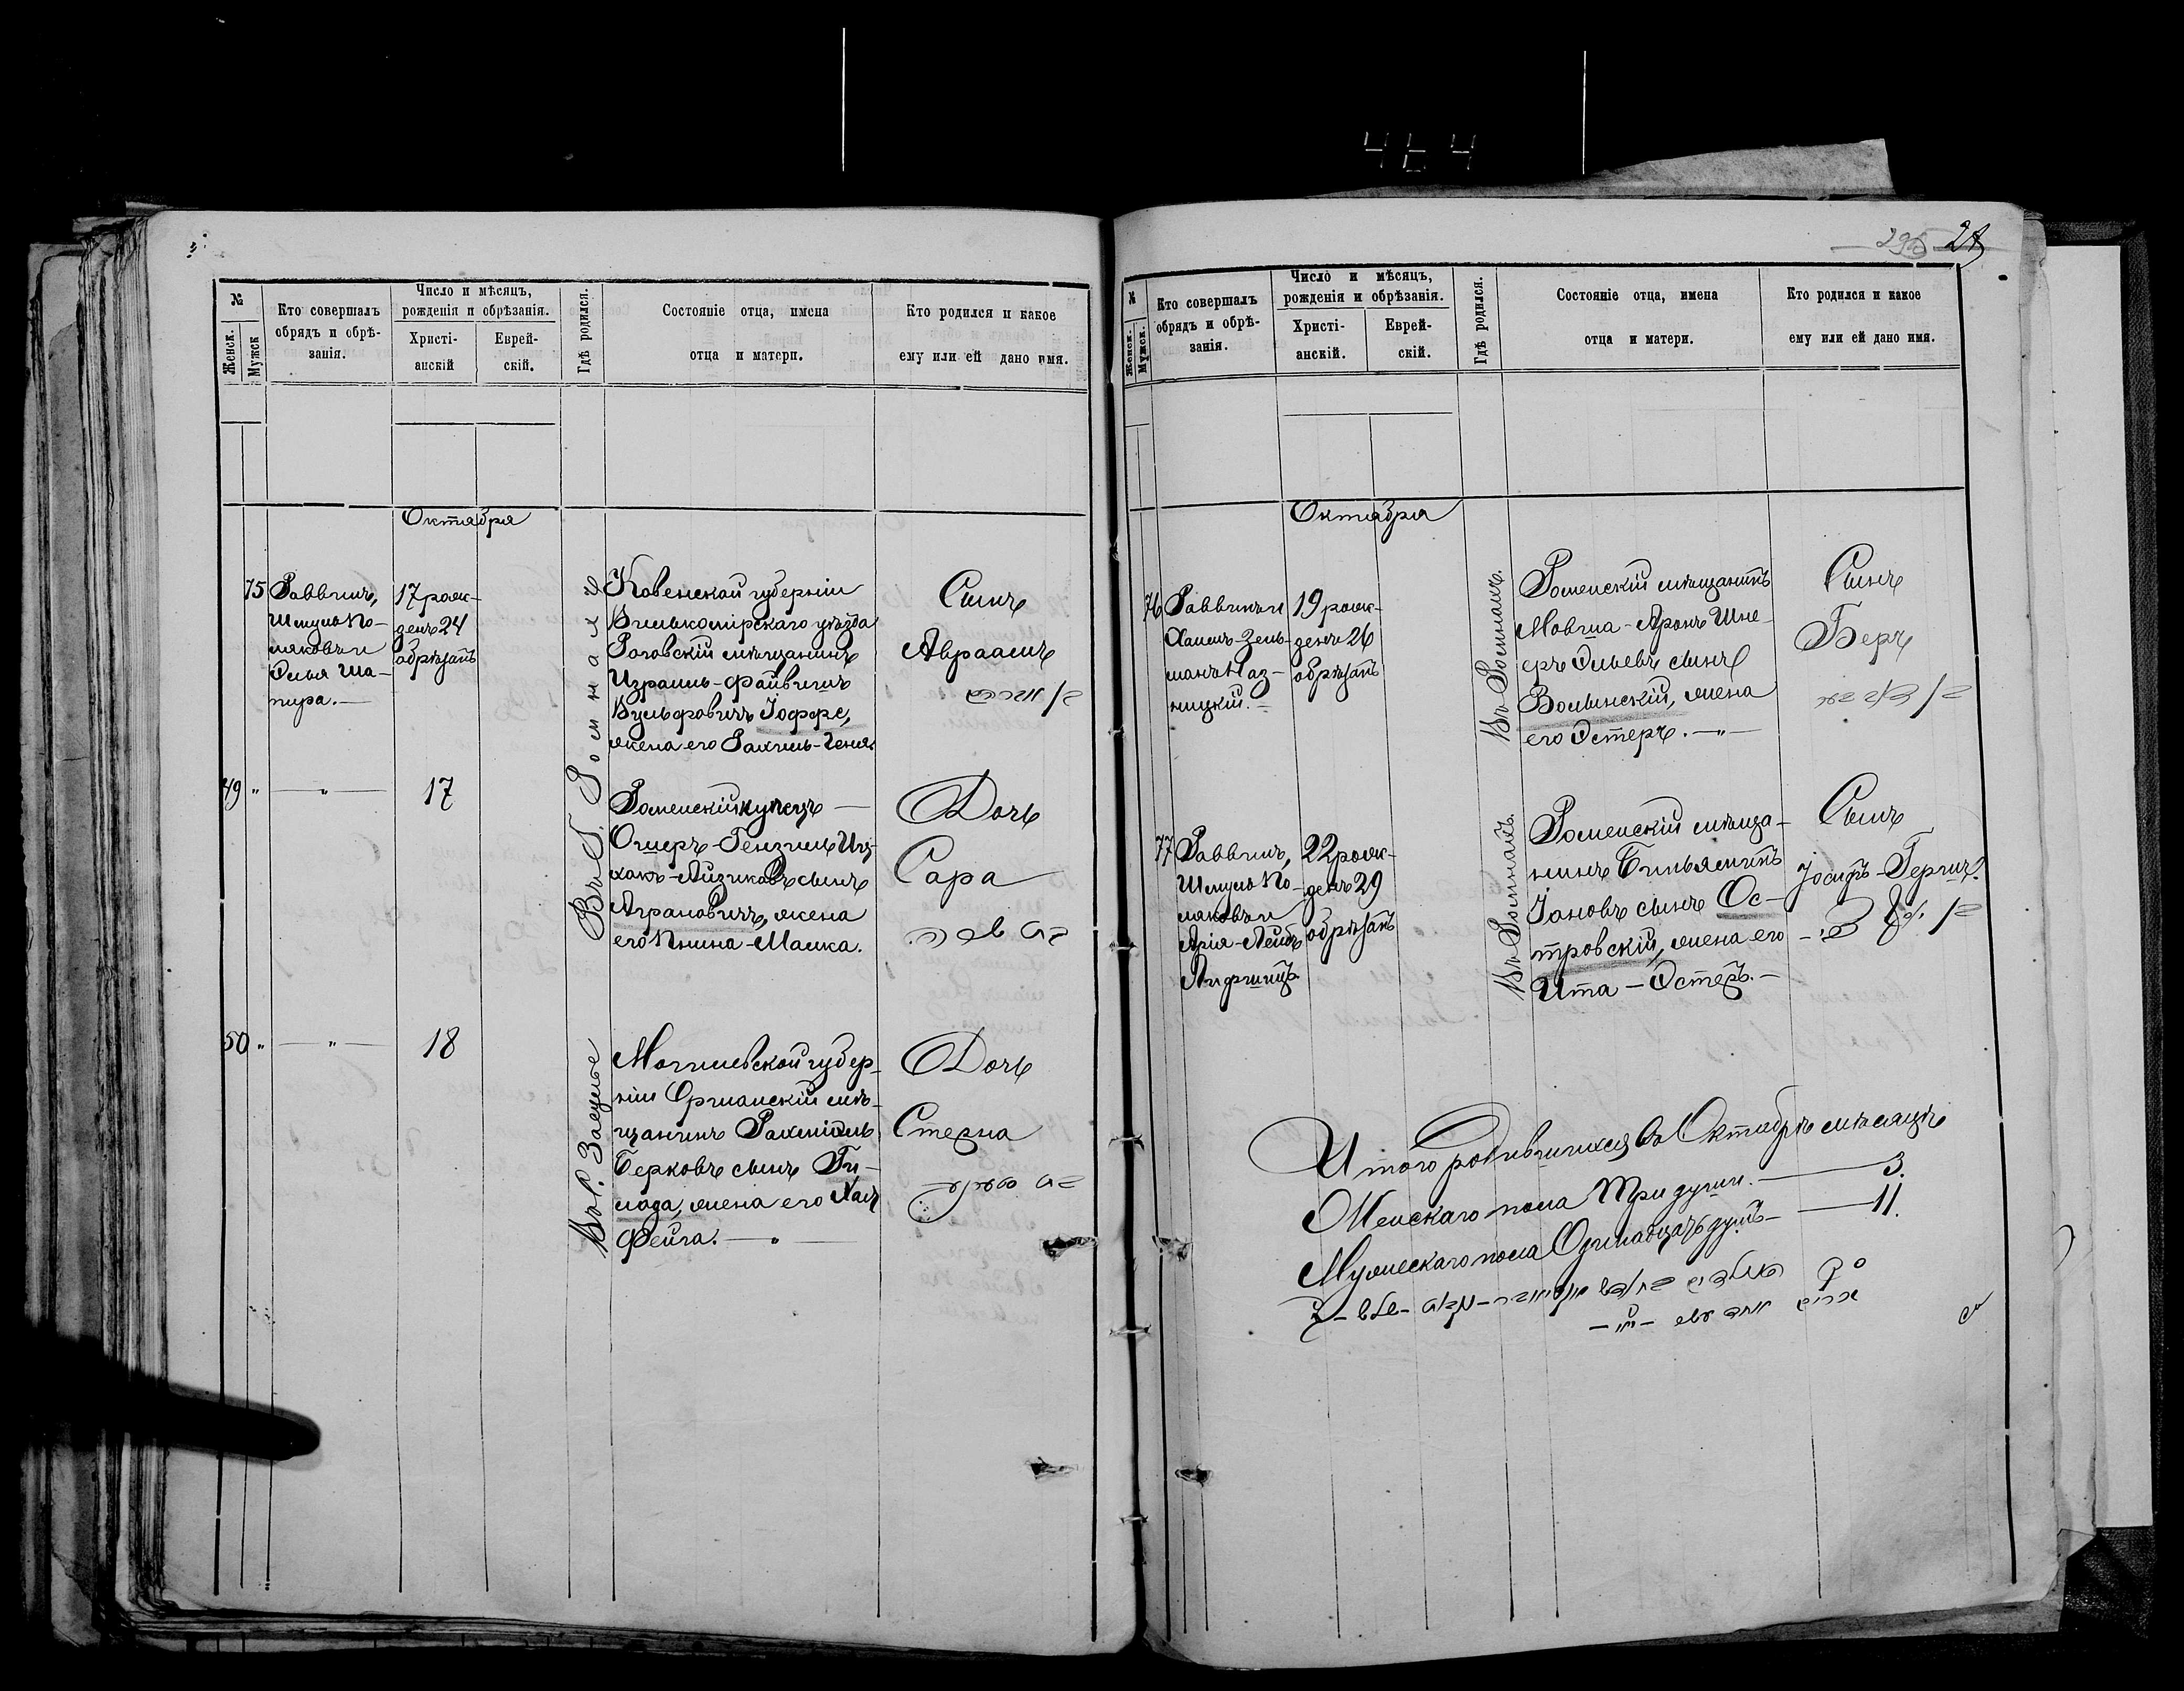 464
295 27
№
Женск.
Мужск
Кто совершалъ
обрядъ и обрѣ-
занія.
Число и мѣсяцъ,
рожденія и обрѣзанія.
Христі-
анскій
Еврей-
скій.
Гдѣ родился.
Состояніе отца, имена
отца и матери.
Кто родился и какое
ему или ей дано имя.
Октября
75
Раввинъ,
Шмуль По-
ляковъ и
Элья Ша-
пира.—
17 рож-
денъ 24
обрѣзанъ
Въ Г. Ромнахъ
Ковенской губерніи
Вилькомірскаго уѣзда
Роговскій мѣщанинъ
Израиль-Файвишъ
Вульфовичъ Іоффе,
жена его Рахиль-Геня.
Сынъ
Авраамъ
49 " — " —
17
Роменскій купецъ —
Ошеръ-Гензиль Иц-
хокъ-Айзиковъ сынъ
Аграновичъ, жена
его Пнина-Машка.
Дочь
Сара
50 " — " —
18
Въ С. Засулье
Могилевской губер-
ніи Оршанскій мѣ-
щанинъ Рахміэль
Берковъ сынъ Ги-
мода, жена его Хая
Фейга. — " —
Дочь
Стерна
№
Женск.
Мужск.
Кто совершалъ
обрядъ и обрѣ-
занія.
Число и мѣсяцъ,
рожденія и обрѣзанія.
Христі-
анскій.
Еврей-
скій.
Гдѣ родился.
Состояніе отца, имена
отца и матери.
Кто родился и какое
ему или ей дано имя.
Октября
76
Раввинъ и
Хаимъ-Зель-
манъ Наз-
ницкій.—
19 рож-
денъ 26
обрѣзанъ
Въ Ромнахъ.
Роменскій мѣщанинъ
Мовша-Аронъ Шне-
еръ Эльевъ сынъ
Волынскій, жена
его Эстеръ. — " —
Сынъ
Беръ
77
Раввинъ,
Шмуль По-
ляковъ и
Арія-Лейбъ
Лифшицъ
22 рож-
денъ 29
обрѣзанъ
Въ Ромнахъ.
Роменскій мѣща-
нинъ Биньяминъ
Іоновъ сынъ Ос-
тровскій, жена его
Ита-Эстеръ.—
Сынъ
Іосифъ-Гершъ.
Итого родившихся въ Октябрѣ мѣсяцѣ
Женскаго пола Три души. — 3.
Мужескаго пола Одинадцать душъ — 11.